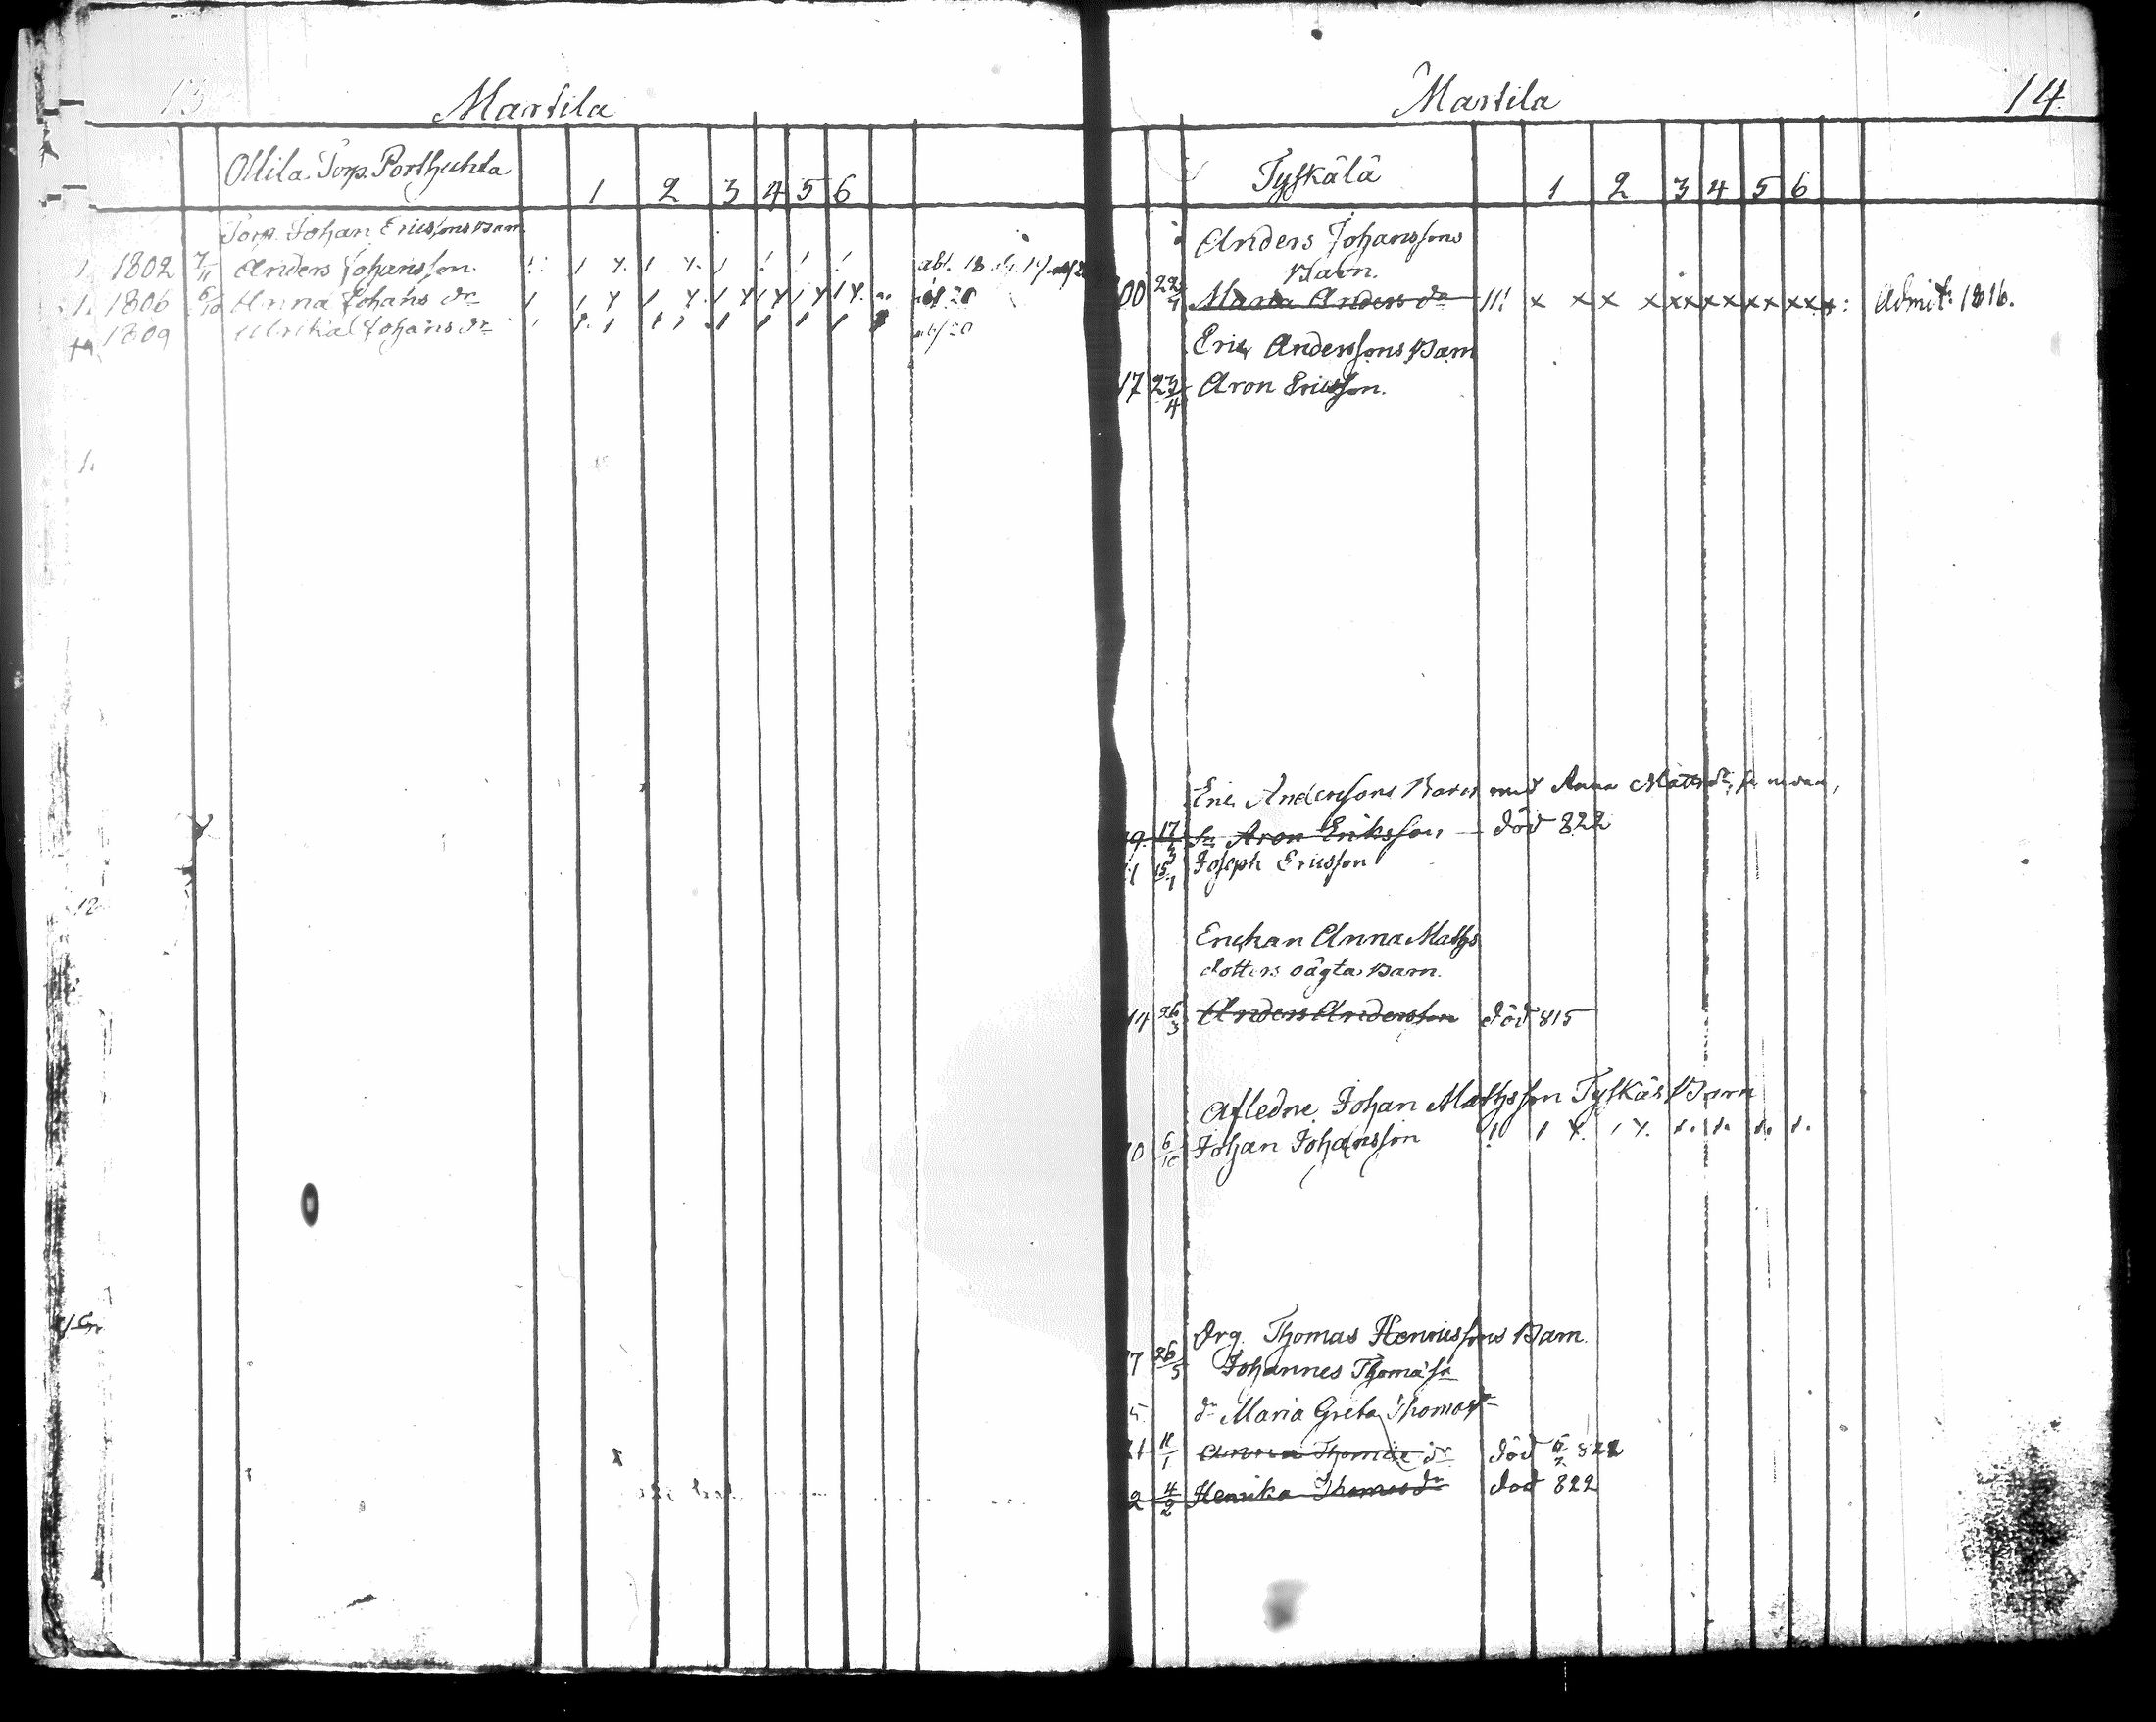 13
Martila
Ollila Torp. Porthuhta 1 2 3 4 5 6
Torp. Johan Ericssons Barn
1802 7/11 Anders Johansson
1806 6/10 Anna Johans dr
1809 Ulrika Johans dr
Martila 14.
Tyskälä 1 2 3 4 5 6
Anders Johanssons
Barn.
00 Maria Anders dr x x x x x x x x x x x x Admit: 1816.
Eric Anderssons Barn
17 23/4 Aron Ericsson.
Eric Anderssons Barn med Anna Matts dr
9 17/3 sn Aron Eriksson, död 822
1 Joseph Ericsson
Enckan Anna Maths
dotters oägta Barn.
14 26/3 Anders Andersson död 815
Afledne Johan Mathsson Tyskäs Barn
0 6/10 Johan Johansson
Drg. Thomas Henricssons Barn
7 26/5 Johannes Thomæ sn
5 dr Maria Greta Thomas dr
21 11/1 Anna Thomæ dr död 822
2 4/2 Henrika Thomas dr död 822